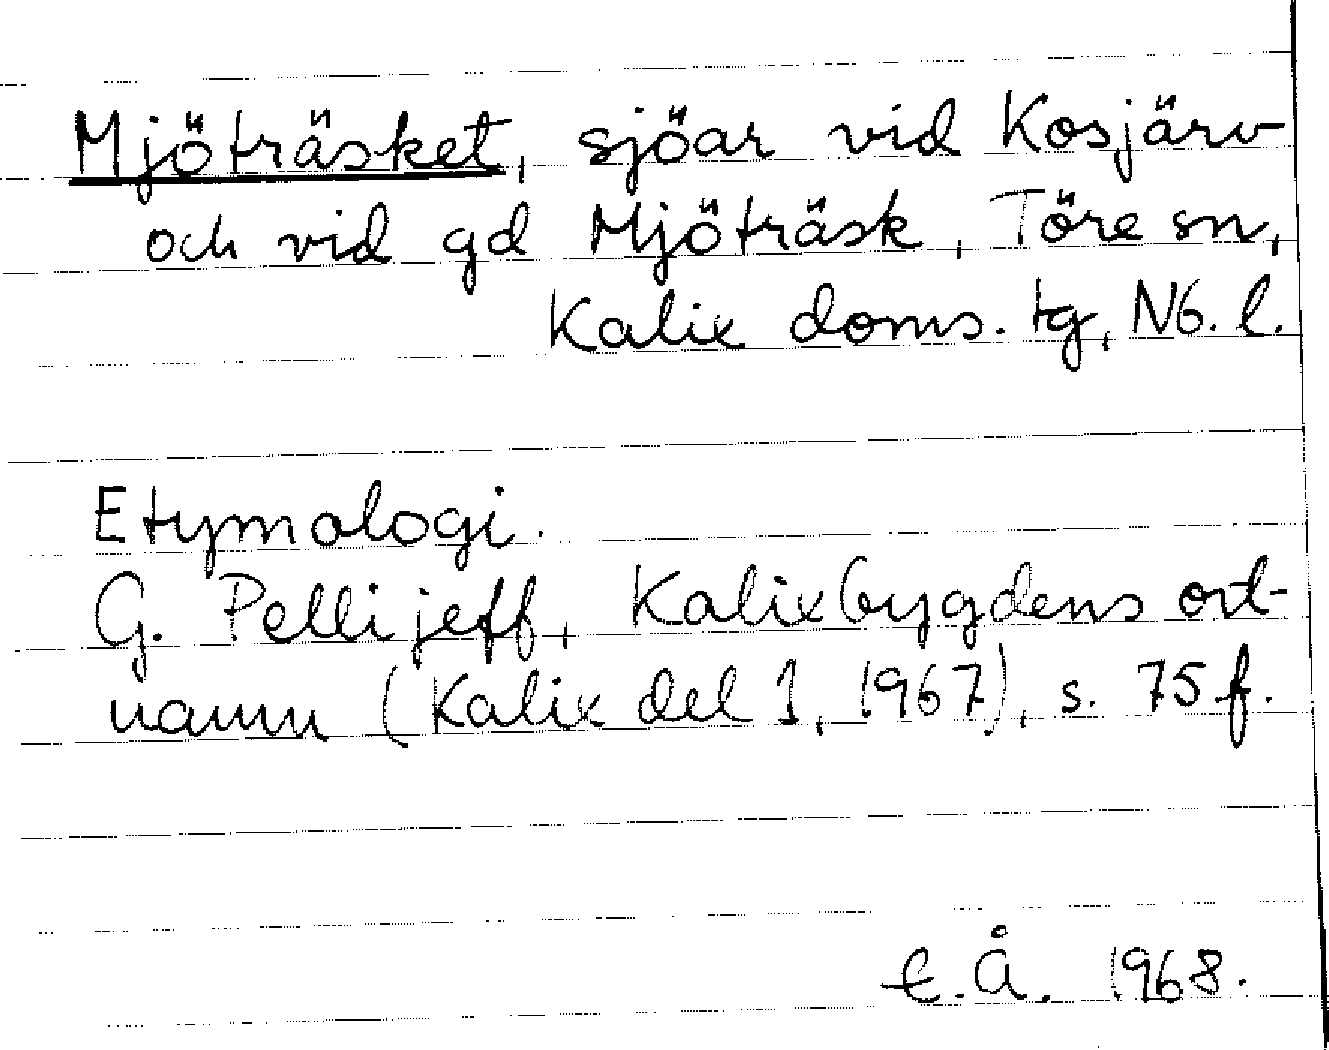 Mjöträsket, sjöar vid Kosjärv
och vid gd Mjöträsk, Töre sn,
Kalix doms. tg, Nb. l.
Etymologi.
G. Pellijeff, Kalixbygdens ort-
namn (Kalix del 1, 1967), s. 75 f.
E.Å. 1968.